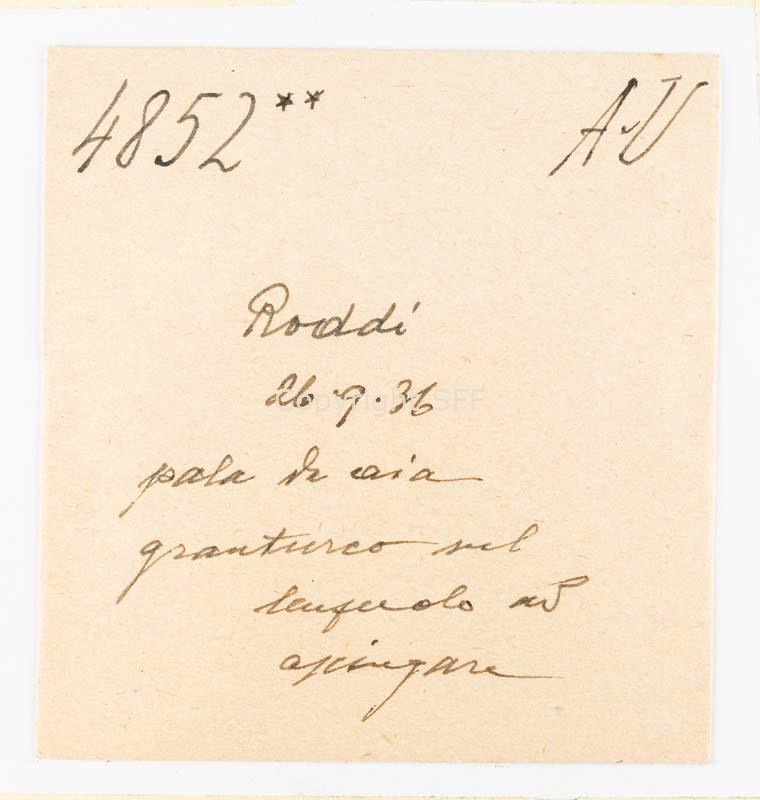 4852** A-U
Roddi
26.9.36
pala da aia
granturco sul
lenzuolo ad
asciugare